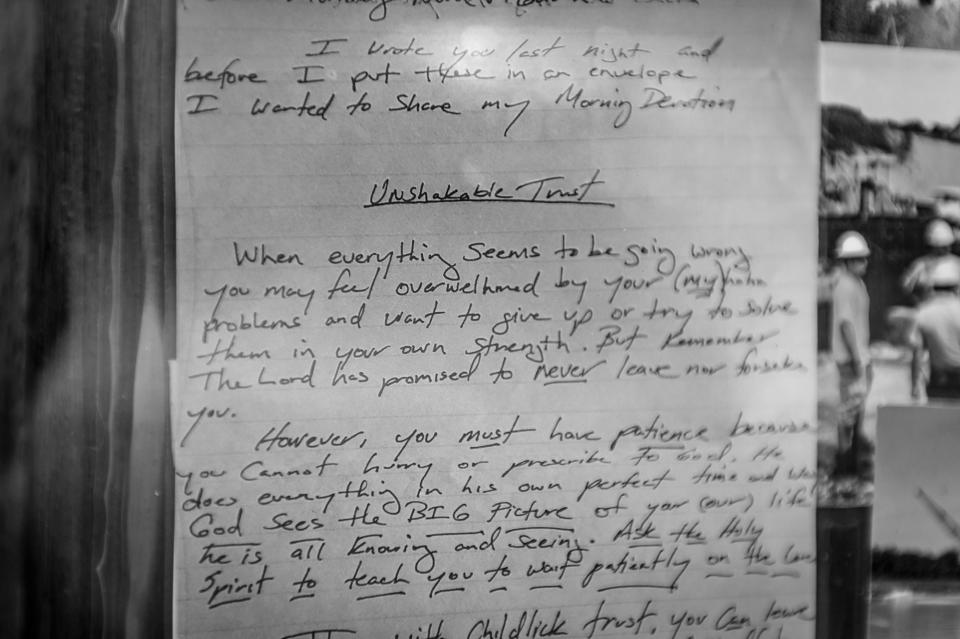 I wrote you last night and
before I put these in an envelope
I wanted to Share my Morning Devotion
Unshakable Trust
When everything Seems to be going wrong
you may feel overwelhmed by your (my) haha
problems and want to give up or try to Solve
them in your own Strength. But Remember
The Lord has promised to never leave nor forsake
you.
However, you must have patience because
you Cannot hurry or prescribe To God. He
does everything in his own perfect time and
God Sees the BIG Picture of your (our) life
he is all Knowing and Seeing. Ask the Holy
Spirit to teach you to wait patiently on the
with Childlick trust, you Can leave